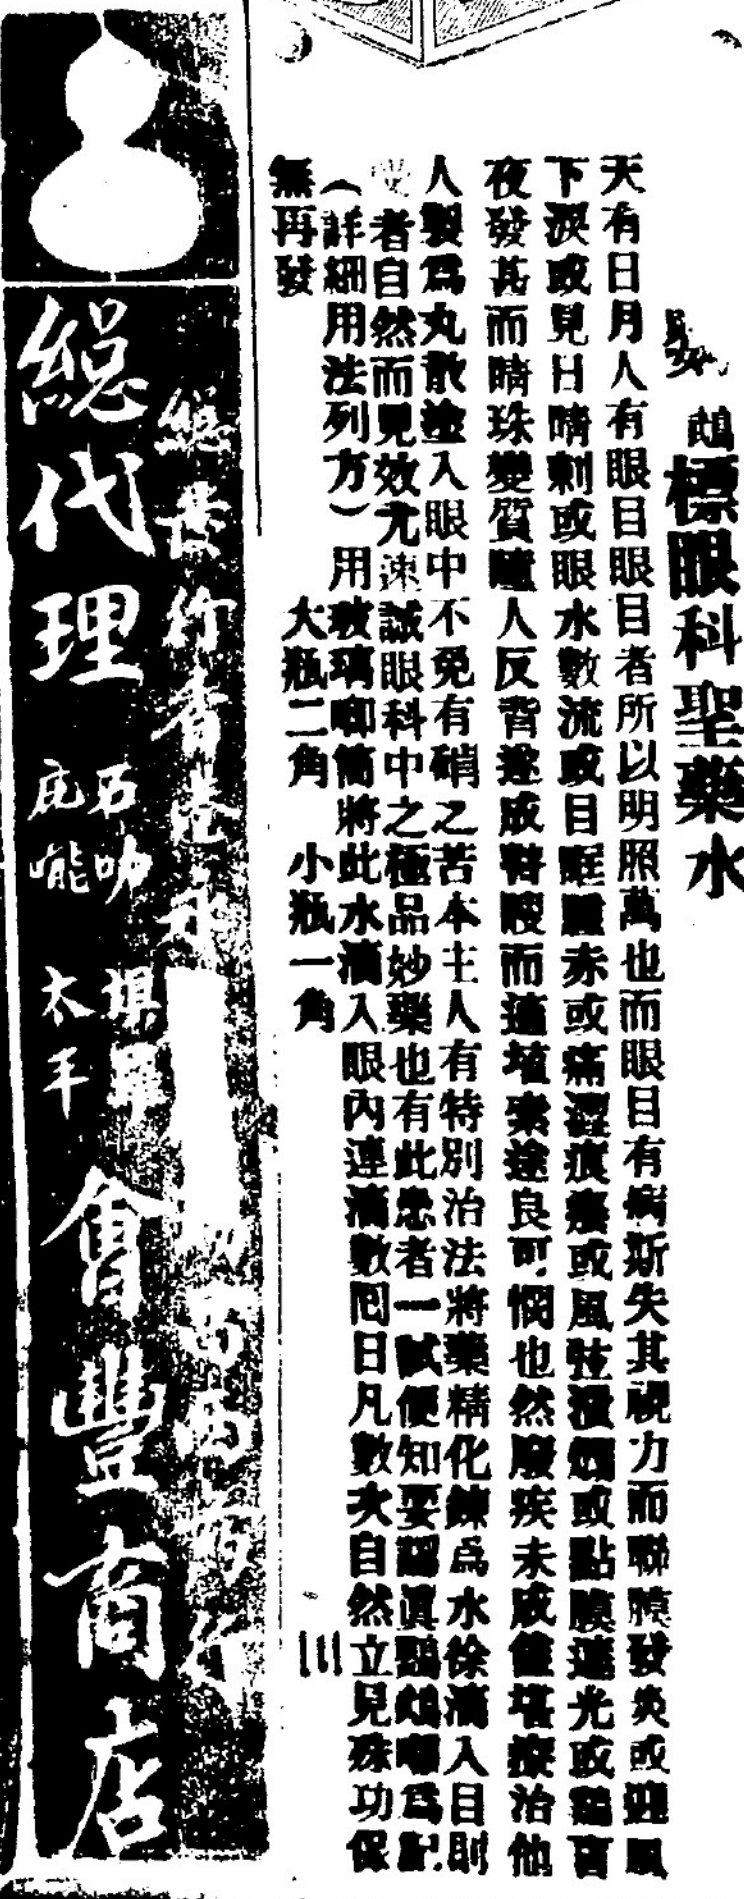 標眼科聖藥水
天有日月人有眼目眼目者所以明照萬也而眼目有病斯失其視力而聯膜發炎或迎風
下淚或見日晴刺或眼水數流或目眶腫赤或痛澀痕癢或風弦濕爛或點膜遮光或鷄盲
夜發甚而睛珠變質瞳人反背遂成瞽瞍而適埴索途良可憫也然廢疾未成僅堪療治他
人製爲丸散塗入眼中不免有硝之苦本主人有特別治法將藥精化鍊爲水徐滴入目則
受者自然而見效尤速誠眼科中之極品妙藥也有此患者一試便知要認眞鸚鵡嘜爲記
（詳細用法列方）用玻璃唧筒將此水滴入眼內連滴數囘日凡數次自然立見殊功保
無再發
大瓶二角 小瓶一角
總代理
石叻
庇嚨
太平
會豐商店